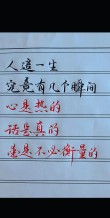 人這一生
究竟有几个瞬间
心是热的
话是真的
意是不必衡量的